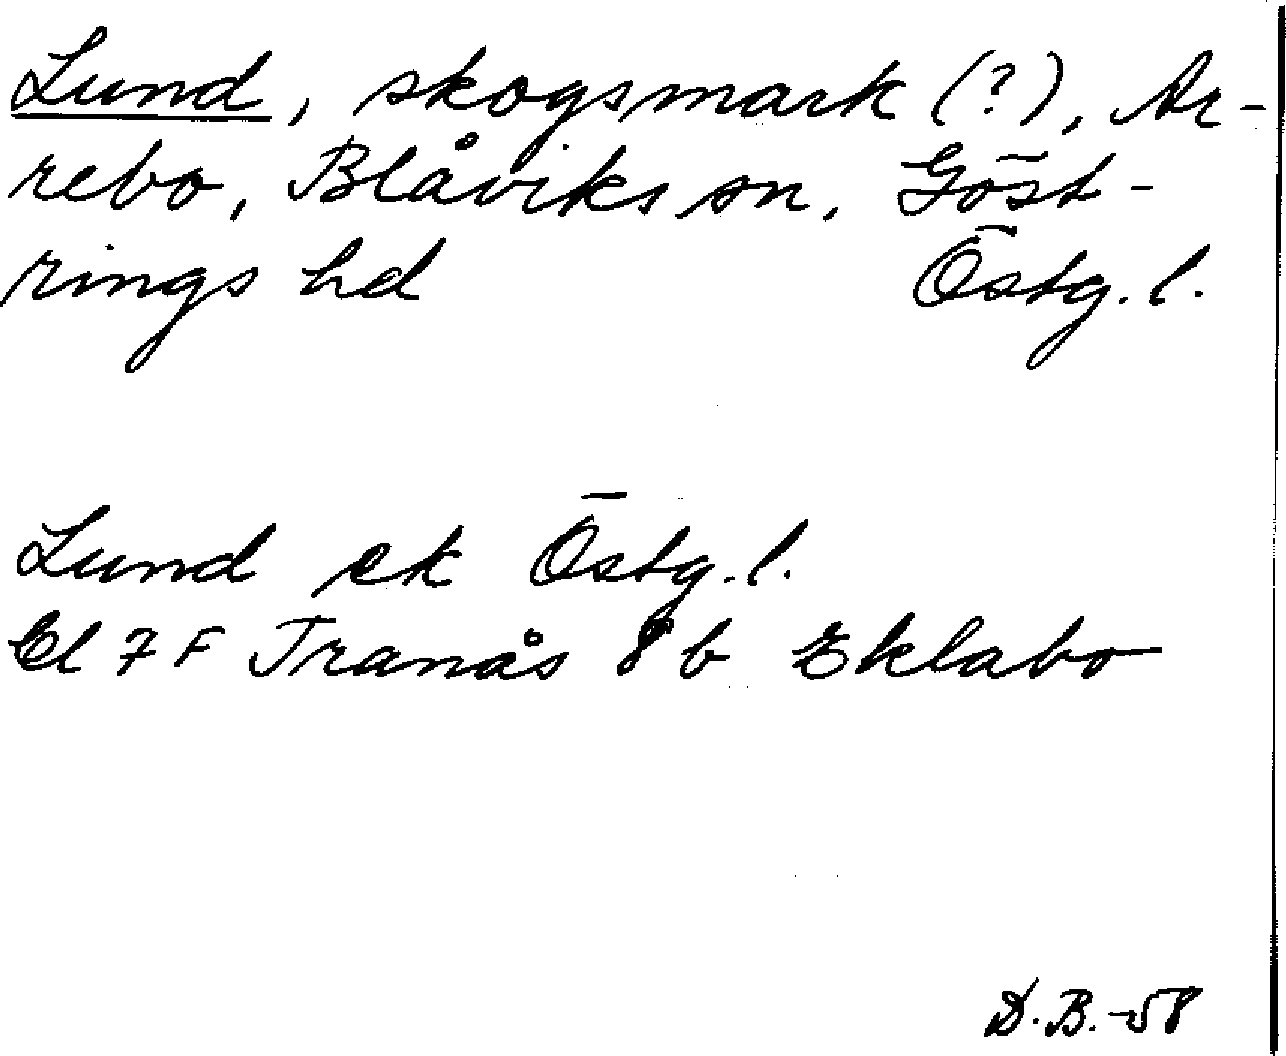 Lund, skogsmark (?), Ar-
rebo, Blåviks sn, Göst-
rings hd Östg. l.
Lund ek Östg. l.
El 7 F Tranås 8 b Eklabo
D.B.-58